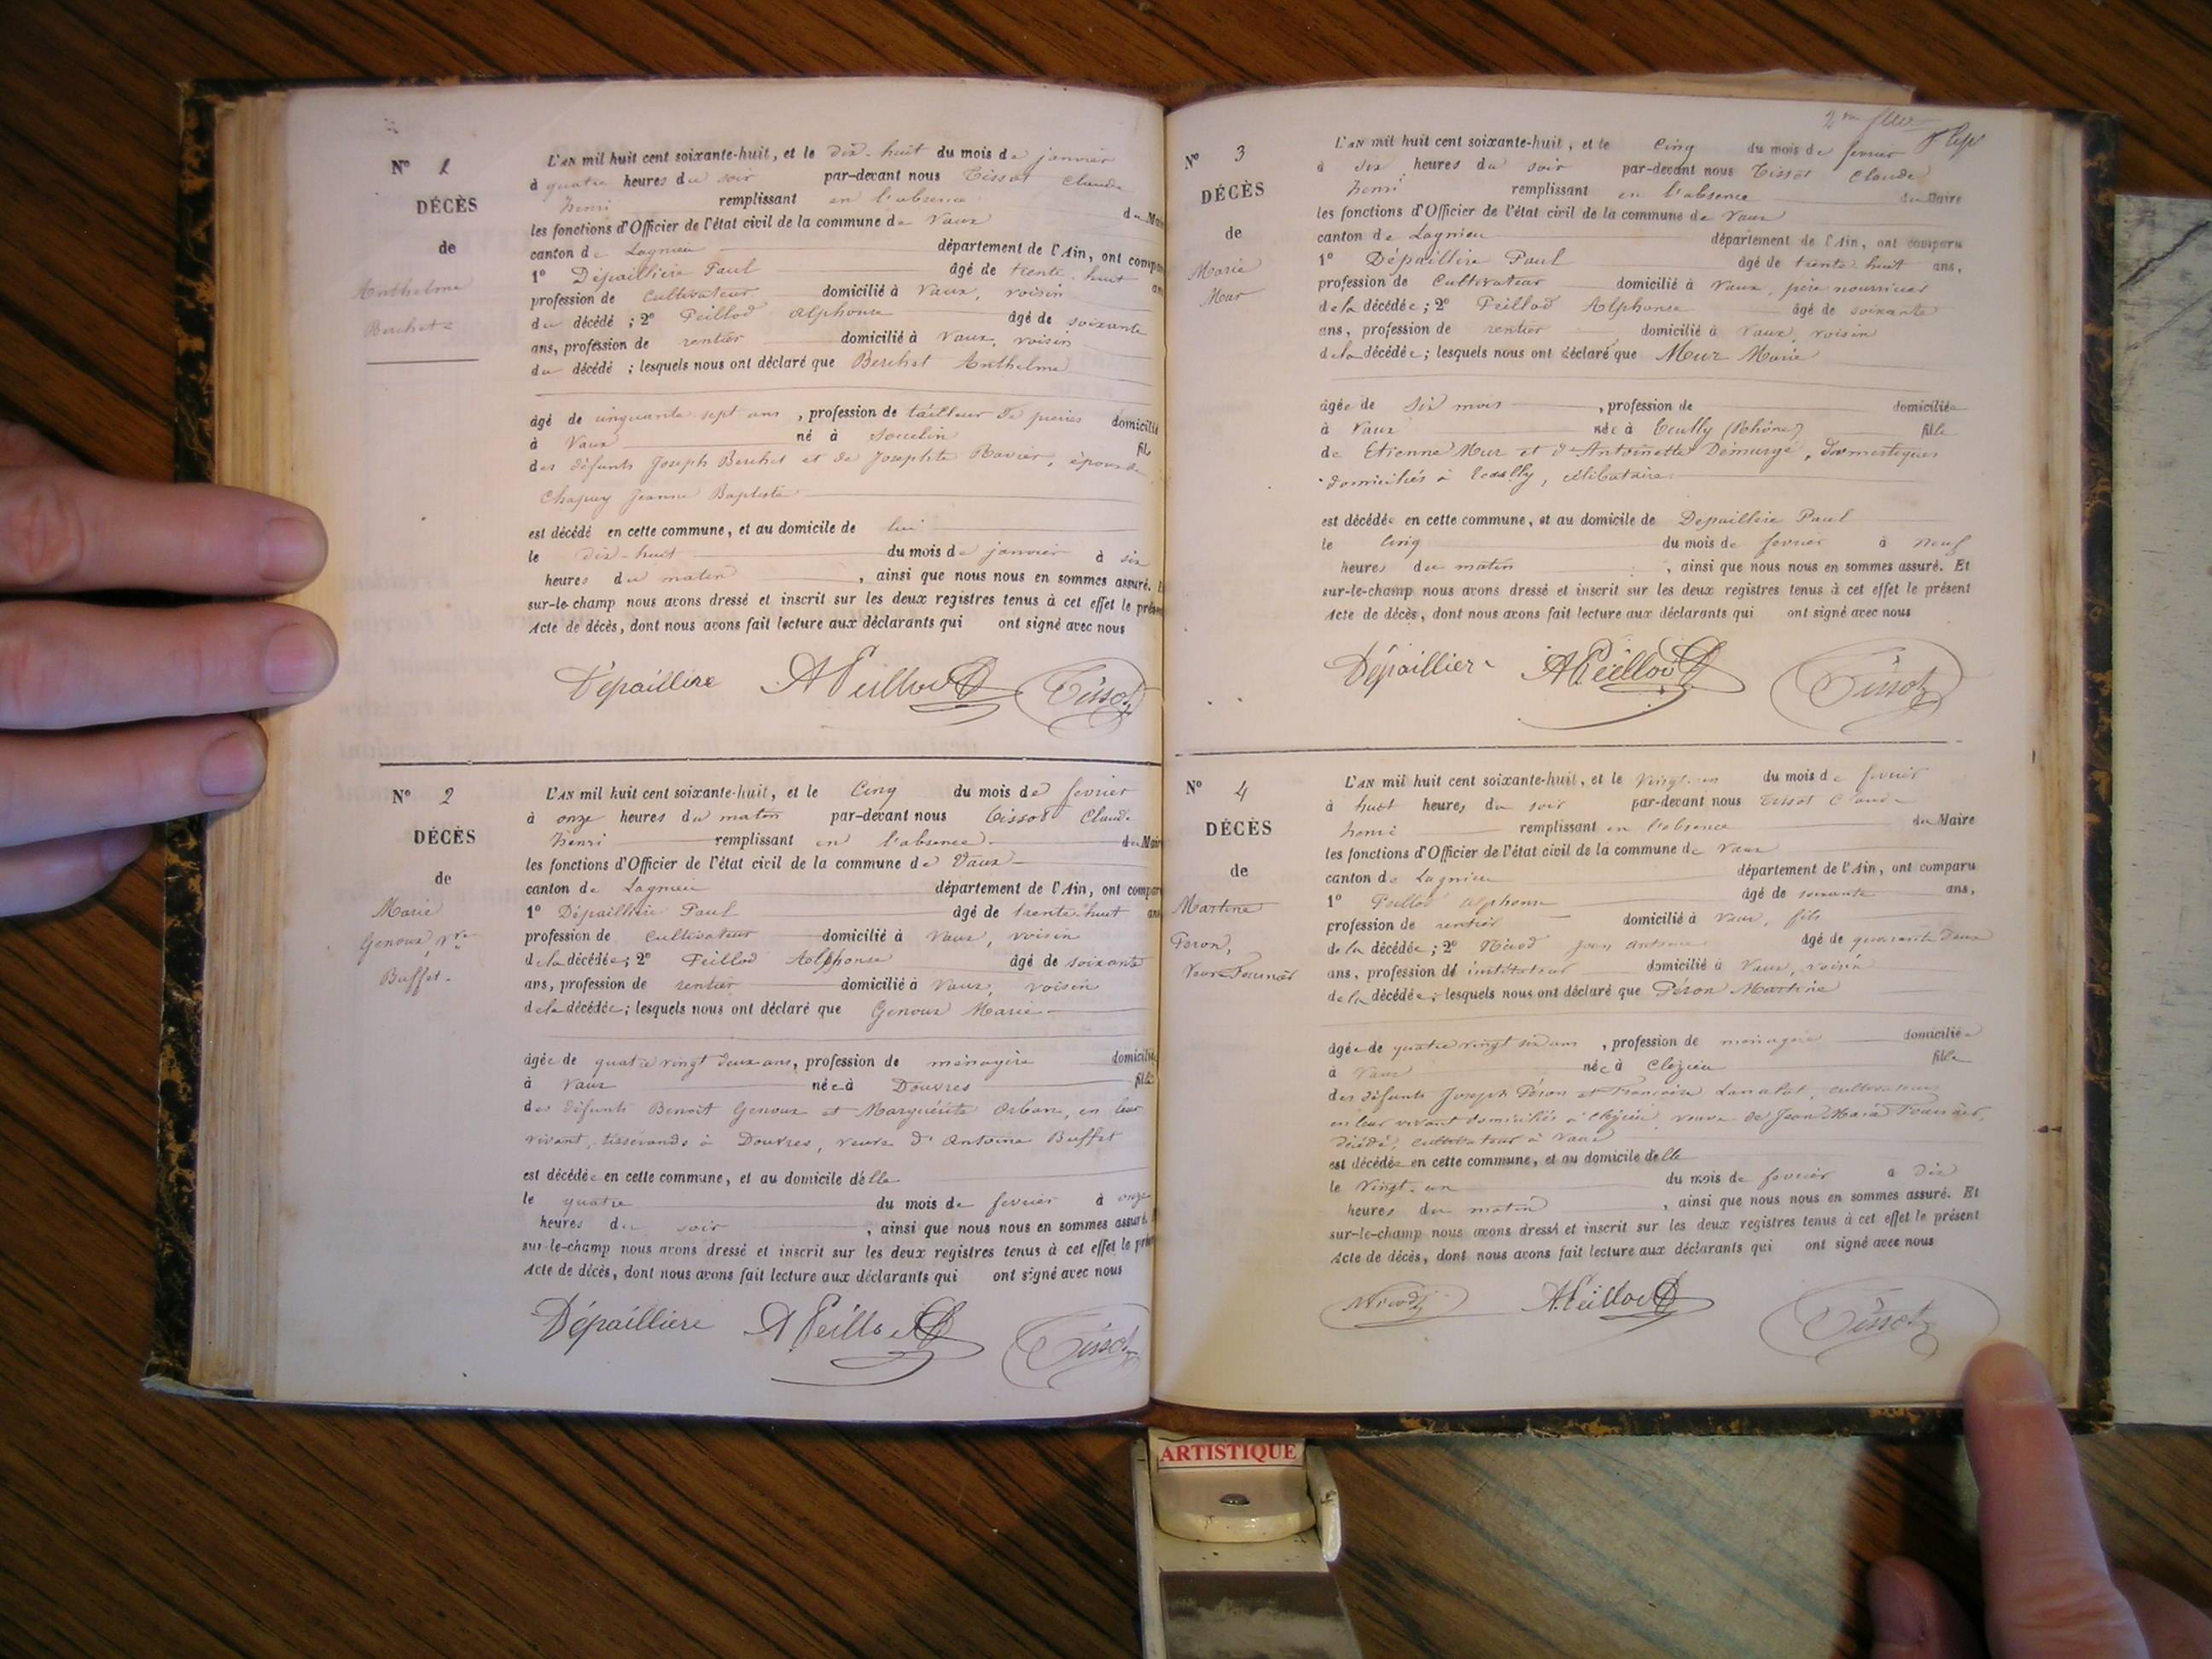 N° 1
DÉCÈS
de
Anthelme
Berchet
L'AN mil huit cent soixante-huit, et le dix-huit du mois de janvier
à quatre heures du soir par-devant nous Tissot Claude
henri remplissant en l'absence du Mai
les fonctions d'Officier de l'état civil de la commune de Vaux
canton de Lagnieu département de l'Ain, ont compa
1° Dépaillière Paul âgé de trente-huit an
profession de Cultivateur domicilié à Vaux, voisin
du décédé ; 2° Peillod Alphonse âgé de soixante
ans, profession de rentier domicilié à Vaux, voisin
du décédé ; lesquels nous ont déclaré que Berchet Anthelme
âgé de cinquante sept ans, profession de tailleur de pierres domicilié
à Vaux né à Soucelin fils
des défunts Joseph Berchet et de Josephte Ravier, époux de
Chapuy Jeanne Baptiste
est décédé en cette commune, et au domicile de lui
le dix-huit du mois de janvier à six
heures du matin, ainsi que nous nous en sommes assuré. E
sur-le-champ nous avons dressé et inscrit sur les deux registres tenus à cet effet le présen
Acte de décès, dont nous avons fait lecture aux déclarants qui ont signé avec nous
Dépaillière A Peillod Tissot
N° 2
DÉCÈS
de
Marie
Genoux, vve
Buffet
L'AN mil huit cent soixante-huit, et le Cinq du mois de fevrier
à onze heures du matin par-devant nous Tissot Claude
henri remplissant en l'absence du Mair
les fonctions d'Officier de l'état civil de la commune de Vaux
canton de Lagnieu département de l'Ain, ont compar
1° Dépaillière Paul âgé de trente-huit ans
profession de Cultivateur domicilié à Vaux, voisin
de la décédée ; 2° Peillod Alphonse âgé de soixante
ans, profession de rentier domicilié à Vaux, voisin
de la décédée ; lesquels nous ont déclaré que Genoux Marie
âgée de quatre vingt deux ans, profession de ménagère domicilié
à Vaux née à Douvres fille
des défunts Benoit Genoux et Marguérite Orban, en leur
vivant, tisserands à Douvres, veuve d'Antoine Buffet
est décédée en cette commune, et au domicile d'elle
le quatre du mois de fevrier à onze
heures du soir, ainsi que nous nous en sommes assuré.
sur-le-champ nous avons dressé et inscrit sur les deux registres tenus à cet effet le prés
Acte de décès, dont nous avons fait lecture aux déclarants qui ont signé avec nous
Dépaillière A Peillod Tissot
2me
N° 3
DÉCÈS
de
Marie
Mur
L'AN mil huit cent soixante-huit, et le Cinq du mois de fevrier
à six heures du soir par-devant nous Tissot Claude
henri remplissant en l'absence du Maire
les fonctions d'Officier de l'état civil de la commune de Vaux
canton de Lagnieu département de l'Ain, ont comparu
1° Dépaillière Paul âgé de trente-huit ans,
profession de Cultivateur domicilié à Vaux, père nourricier
de la décédée ; 2° Peillod Alphonse âgé de soixante
ans, profession de rentier domicilié à Vaux, voisin
de la décédée ; lesquels nous ont déclaré que Mur Marie
âgée de six mois, profession de domiciliée
à Vaux née à Ecully (Rhône) fille
de Etienne Mur et d'Antoinette Démurge, domestiques
domiciliés à Ecully, célibataire
est décédée en cette commune, et au domicile de Depaillière Paul
le Cinq du mois de fevrier à neuf
heures du matin, ainsi que nous nous en sommes assuré. Et
sur-le-champ nous avons dressé et inscrit sur les deux registres tenus à cet effet le présent
Acte de décès, dont nous avons fait lecture aux déclarants qui ont signé avec nous
Dépaillière A Peillod Tissot
N° 4
DÉCÈS
de
Martine
Peron,
Veuve Fournier
L'AN mil huit cent soixante-huit, et le Vingt-un du mois de fevrier
à huit heures du soir par-devant nous Tissot Claude
henri remplissant en l'absence du Maire
les fonctions d'Officier de l'état civil de la commune de Vaux
canton de Lagnieu département de l'Ain, ont comparu
1° Peillod Alphonse âgé de soixante ans,
profession de rentier domicilié à Vaux, fils
de la décédée ; 2° Nicod Jean âgé de quarante deux
ans, profession de instituteur domicilié à Vaux, voisin
de la décédée ; lesquels nous ont déclaré que Péron Martine
âgée de quatre vingt six ans, profession de ménagère domiciliée
à Vaux née à Cleyzieu fille
des défunts Joseph Péron et Françoise cultivateurs
en leur vivant domiciliés à Cleyzieu, veuve de Jean Marie Fournier,
décédé, cultivateur à Vaux
est décédée en cette commune, et au domicile d'elle
le Vingt-un du mois de fevrier à dix
heures du matin, ainsi que nous nous en sommes assuré. Et
sur-le-champ nous avons dressé et inscrit sur les deux registres tenus à cet effet le présent
Acte de décès, dont nous avons fait lecture aux déclarants qui ont signé avec nous
Nicod A. Peillod Tissot
ARTISTIQUE